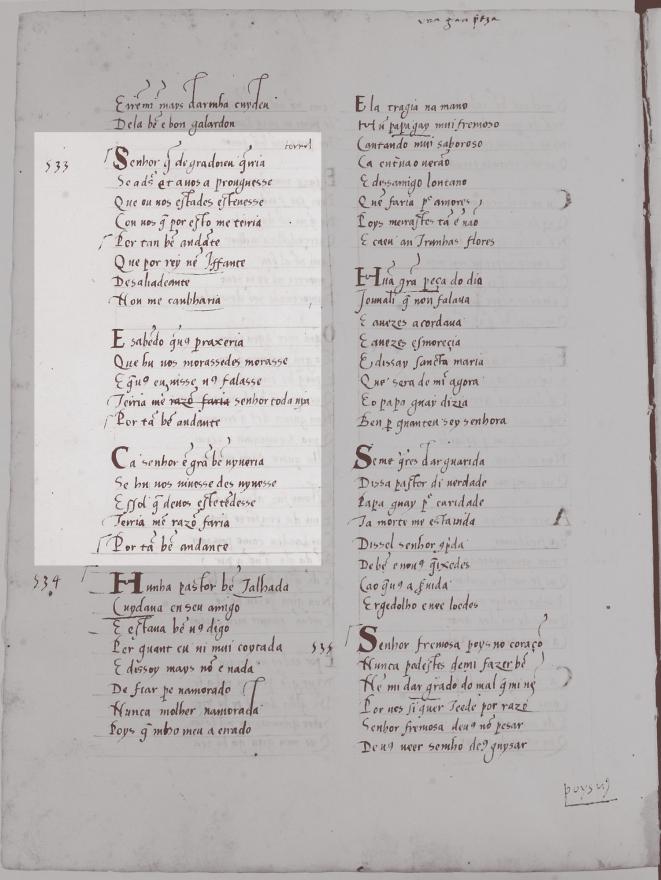 una gran peza
E viremi mays darmha cuydeu
Dela bẽ e bon galardon
tornel
533
Senhor q̃ de gradoreu q̃ria
Se a ds̃ et a uos a prouguesse
Que ou uos estades esteuesse
Con uos q̃ por esto me teiria
Por tan bẽ andãte
Que por rey nẽ Iffante
Desaliadeante
Non me canbharia
E sabẽdo q̃ uꝯ praxeria
Que hu uos morassedes morasse
E q̃ uꝯ eu uisse, uꝯ falasse
Teiria mẽ razõ faria senhor toda uya
Por tã bẽ andante
Ca senhor ẽ grã bẽ uyueria
Se hu uos uiuesse des uyuesse
E ssol q̃ deuos estetedesse
Teiria mẽ razõ faria
Por tã bẽ andante
534
Hunha pastor bẽ Talhada
Cuydaua en seu amigo
E estaua bẽ uꝯ digo
Per quant eu ui mui coytada
E dissoy mays nõ e nada
De fiar pe namorado
Nunca molher namorada
Poys q̃ mho meu a errado
E la tragia na mano
Hũ papagay mui fremoso
Cantando mui saboroso
Ca entraua o uerão
E dissamigo loucano
Que faria pr̃ amores
Poys meirastes tã ẽ uão
E caeu an Trunhas flores
Hũa grã peça do dia
Jouuali q̃ non falaua
E auezes acordaua
E auezes esmoreçia
E dissay sancta maria
Que sera de mĩ agora
E o papa guay dizia
Ben p̃ quanteu sey senhora
Se me q̃res dar guarida
Dissa pastor di uerdade
Papa guay pr̃ caridade
Ca morte me esta uida
Dissel senhor cõprida
De bẽ e non uꝯ q̃ixedes
Ca o q̃ uꝯ a seruida
Ergedolho e ueelo edes
535
Senhor fremosa poys no coraçõ
Nunca podestes de mi fazer bẽ
Nẽ mi dar grado do mal q̃ mi uẽ
Por uos siquer Teede por razõ
Senhor fremosa deuꝯ nõ pesar
De uꝯ ueer se mho deꝯ guysar
poys uꝯ